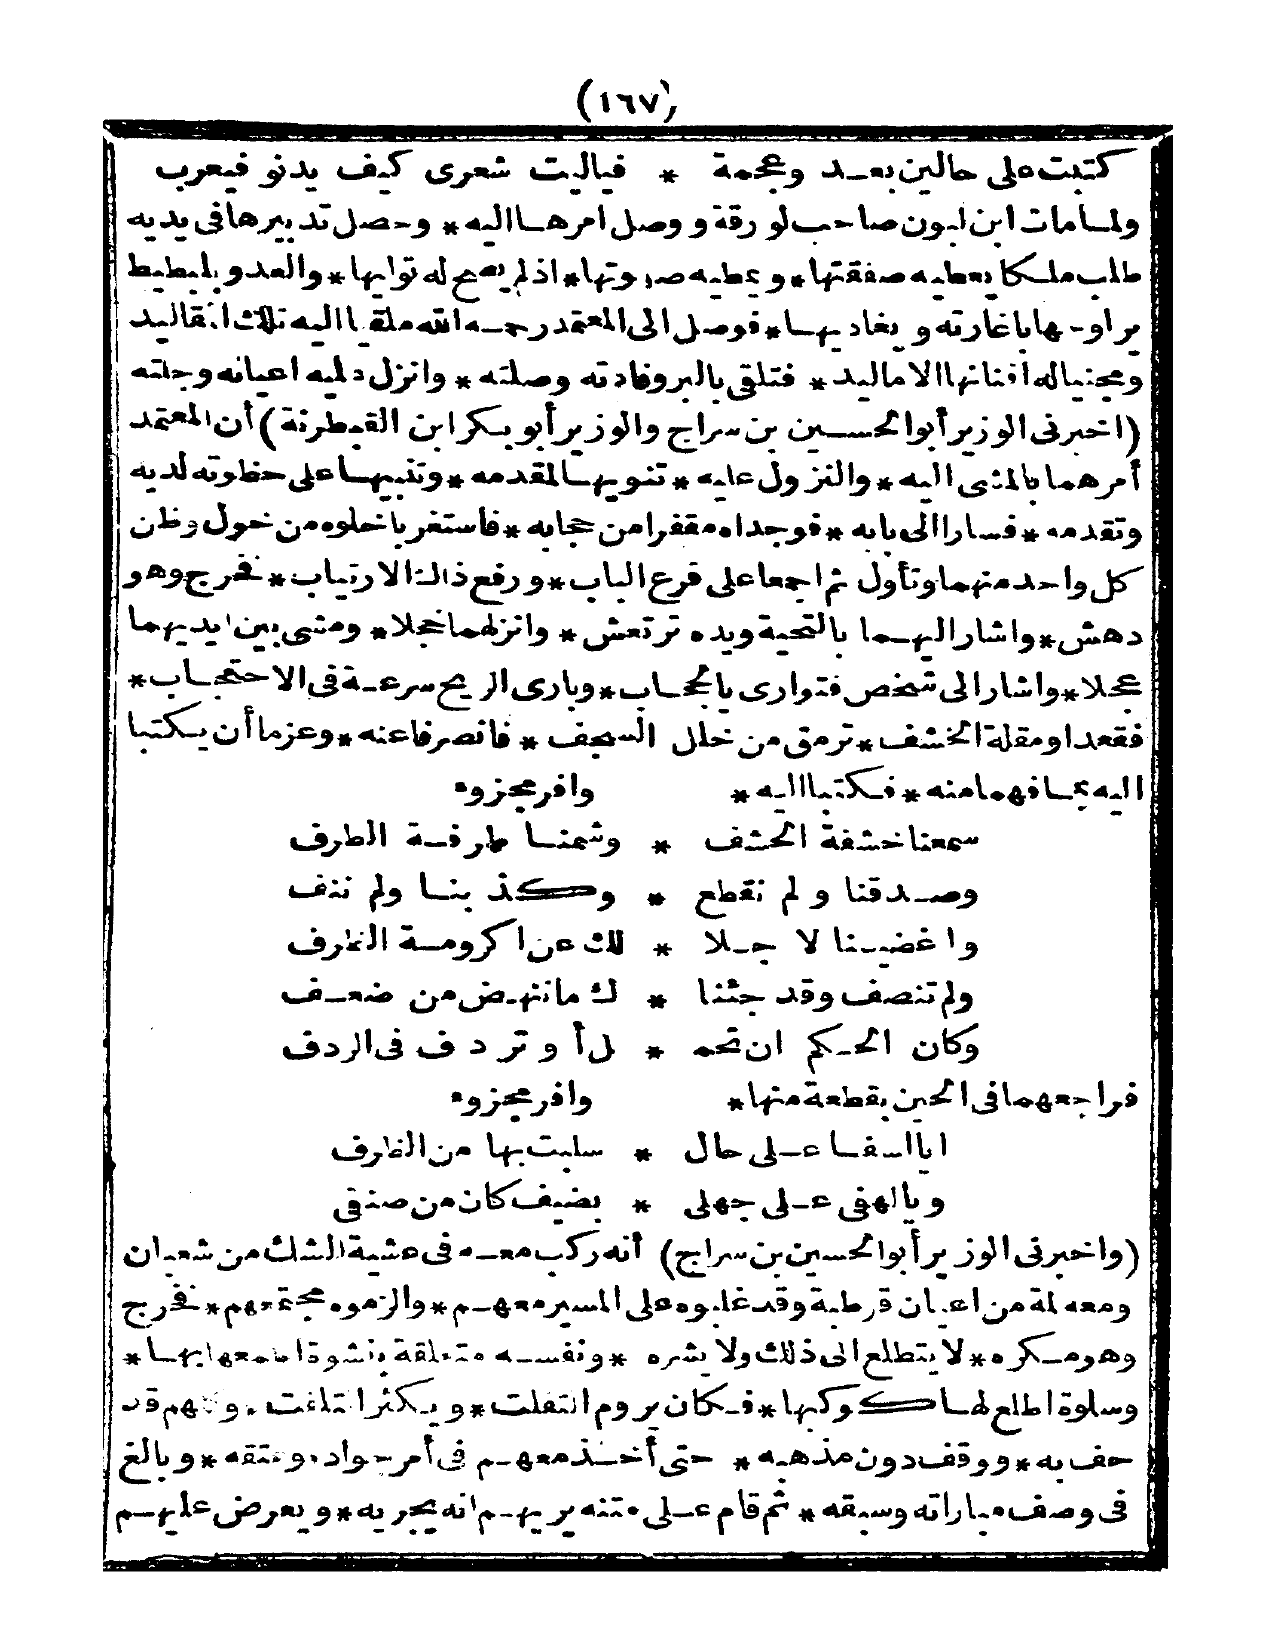 (١٦٧)
كتبت على حالين بعد وعجمة * فياليت شعرى كيف يدنو فيعرب
ولما مات ابن لبون صاحب لورقة ووصل امرها اليه * وحصل تدبيرها فى يديه
طلب ملكا يعطيه صفقتها * ويمطيه صهوتها * اذ لم يصح له ثوابها * والعدو بلبيط
يراوحها باغارته ويغاديها * فوصل الى المعتمد رحمه الله ملقيا اليه تلك المقاليد
ومجنيا له افنانها الاماليد * فتلقى بالبر وفادته وصلته * وانزل عليه اعيانه وجلته
(اخبرنى الوزير أبوالحسين بن سراج والوزير أبو بكر ابن القبطرنة) أن المعتمد
أمرهما بالمشى اليه * والنزول عليه * تنويها لمقدمه * وتنبيها على حظوته لديه
وتقدمه * فسارا الى بابه * فوجداه مقفرا من حجابه * فاستغربا خلوه من خول وظن
كل واحد منهما وتأول ثم اجمعا على قرع الباب * ورفع ذلك الارتياب * فخرج وهو
دهش * واشار اليهما بالتحية ويده ترتعش * وانزلهما خجلا * ومشى بين ايديهما
عجلا * واشار الى شخص فتوارى بالحجاب * وبارى الريح سرعة فى الاحتجاب *
فقعدا ومقلة الخشف * ترمق من خلل السجف * فانصرفا عنه * وعزما أن يكتبا
اليه بما فهما منه * فكتبا اليه * وافر مجزوء
سمعنا خشفة الخشف * وشمنا طرفة الطرف
وصدقنا ولم نقطع * وكذبنا ولم ننف
واغضينا لاجلا * لك عن اكرومة الظرف
ولم تنصف وقد جئنا * ك ما ننهض من ضعف
وكان الحكم ان تحم * ل أو تردف فى الردف
فراجعهما فى الحين بقطعة منها * وافر مجزوء
ايا اسفا على حال * سلبت بها من الظرف
ويا لهفى على جهلى * بضيف كان من صنفى
(واخبرنى الوزير أبوالحسين بن سراج) أنه ركب معه فى عشية الشك من شعبان
ومعه لمة من اعيان قرطبة وقد غلبوه على المسير معهم * والزموه مجتمعهم * فخرج
وهو مكره * لا يتطلع الى ذلك ولا يشره * ونفسه متعلقة بنشوة اجمعها بها *
وسلوة اطلع لها كوكبها * فكان يروم التفلت * ويكثر التلفت * وكلهم قد
حف به * ووقف دون مذهبه * حتى أخذ معهم فى أمر جواده وعتقه * وبالغ
فى وصف مباراته وسبقه * ثم قام على متنه يريهم انه يجريه * ويعرض عليهم